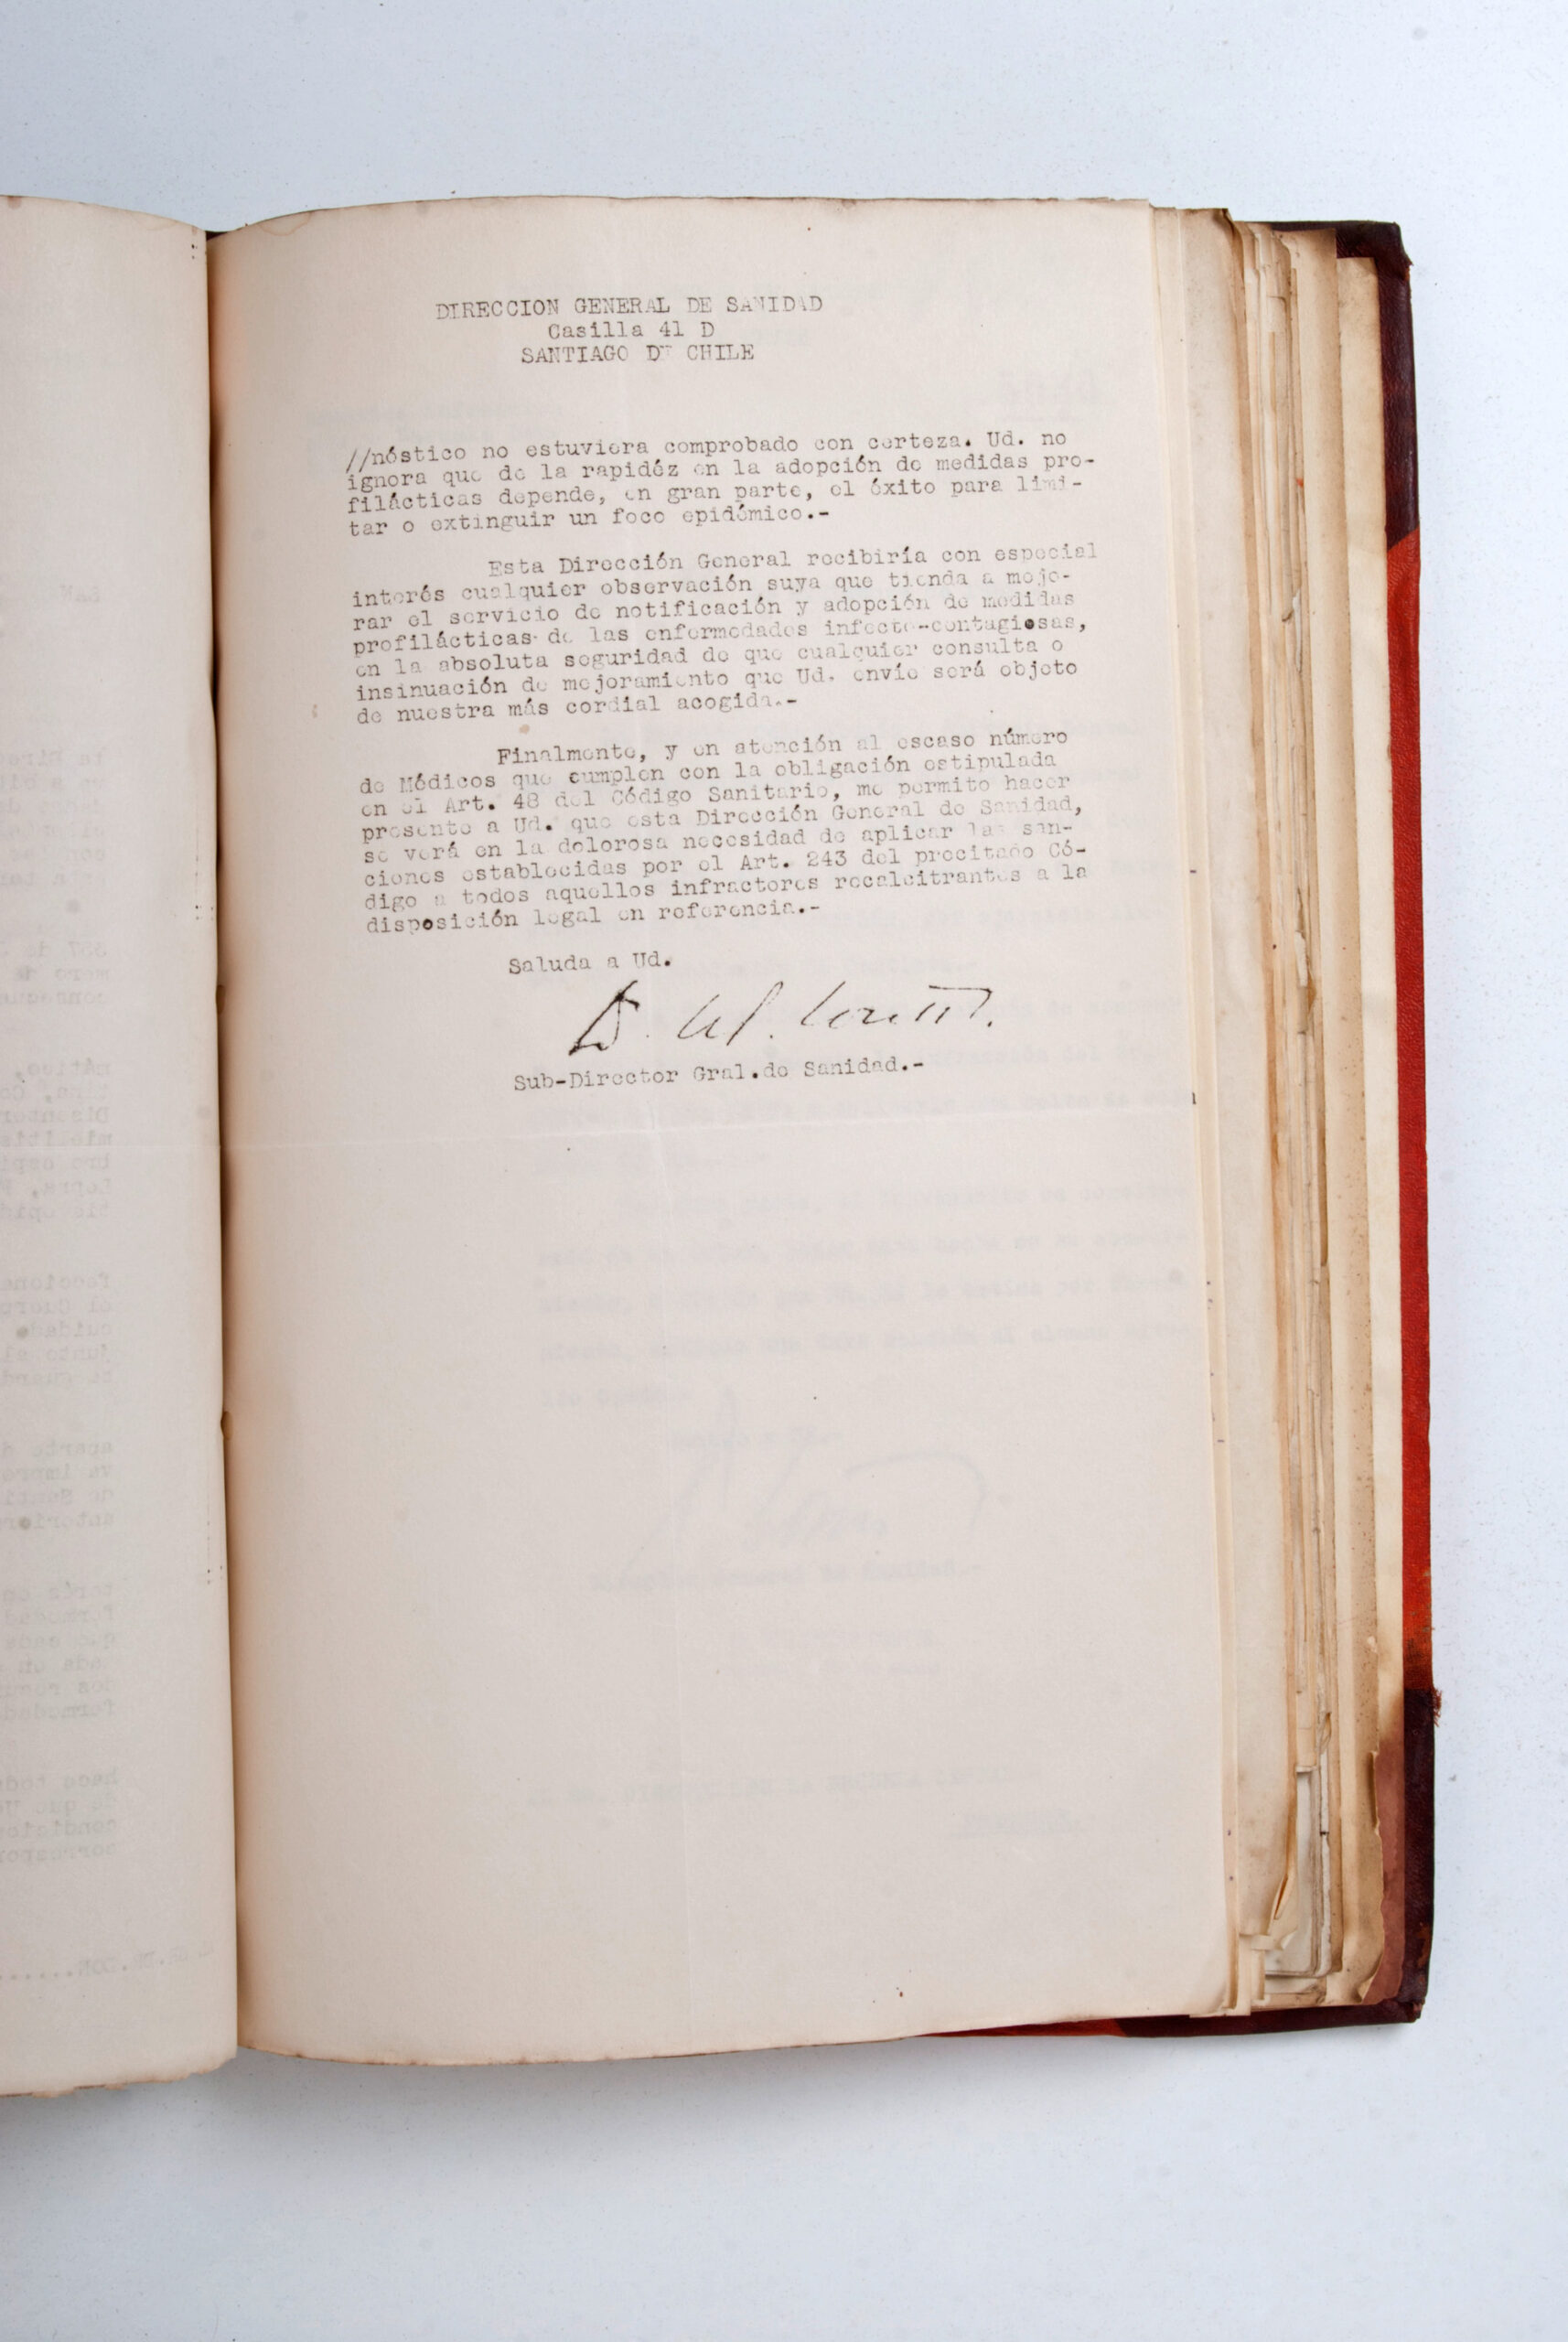 DIRECCION GENERAL DE SANIDAD
Casilla 41 D
SANTIAGO DE CHILE
//nóstico no estuviera comprobado con certeza. Ud. no
ignora que de la rapidéz en la adopción de medidas pro-
filácticas depende, en gran parte, el éxito para limi-
tar o extinguir un foco epidémico.-
Esta Dirección General recibiría con especial
interés cualquier observación suya que tienda a mejo-
rar el servicio de notificación y adopción de medidas
profilácticas de las enfermedades infecto-contagiosas,
en la absoluta seguridad de que cualquier consulta o
insinuación de mejoramiento que Ud. envíe será objeto
de nuestra más cordial acogida.-
Finalmente, y en atención al escaso número
de Médicos que cumplen con la obligación estipulada
en el Art. 48 del Código Sanitario, me permito hacer
presente a Ud. que esta Dirección General de Sanidad,
se verá en la dolorosa necesidad de aplicar las san-
ciones establecidas por el Art. 243 del precitado Có-
digo a todos aquellos infractores recalcitrantes a la
disposición legal en referencia.-
Saluda a Ud.
Sub-Director Gral.de Sanidad.-